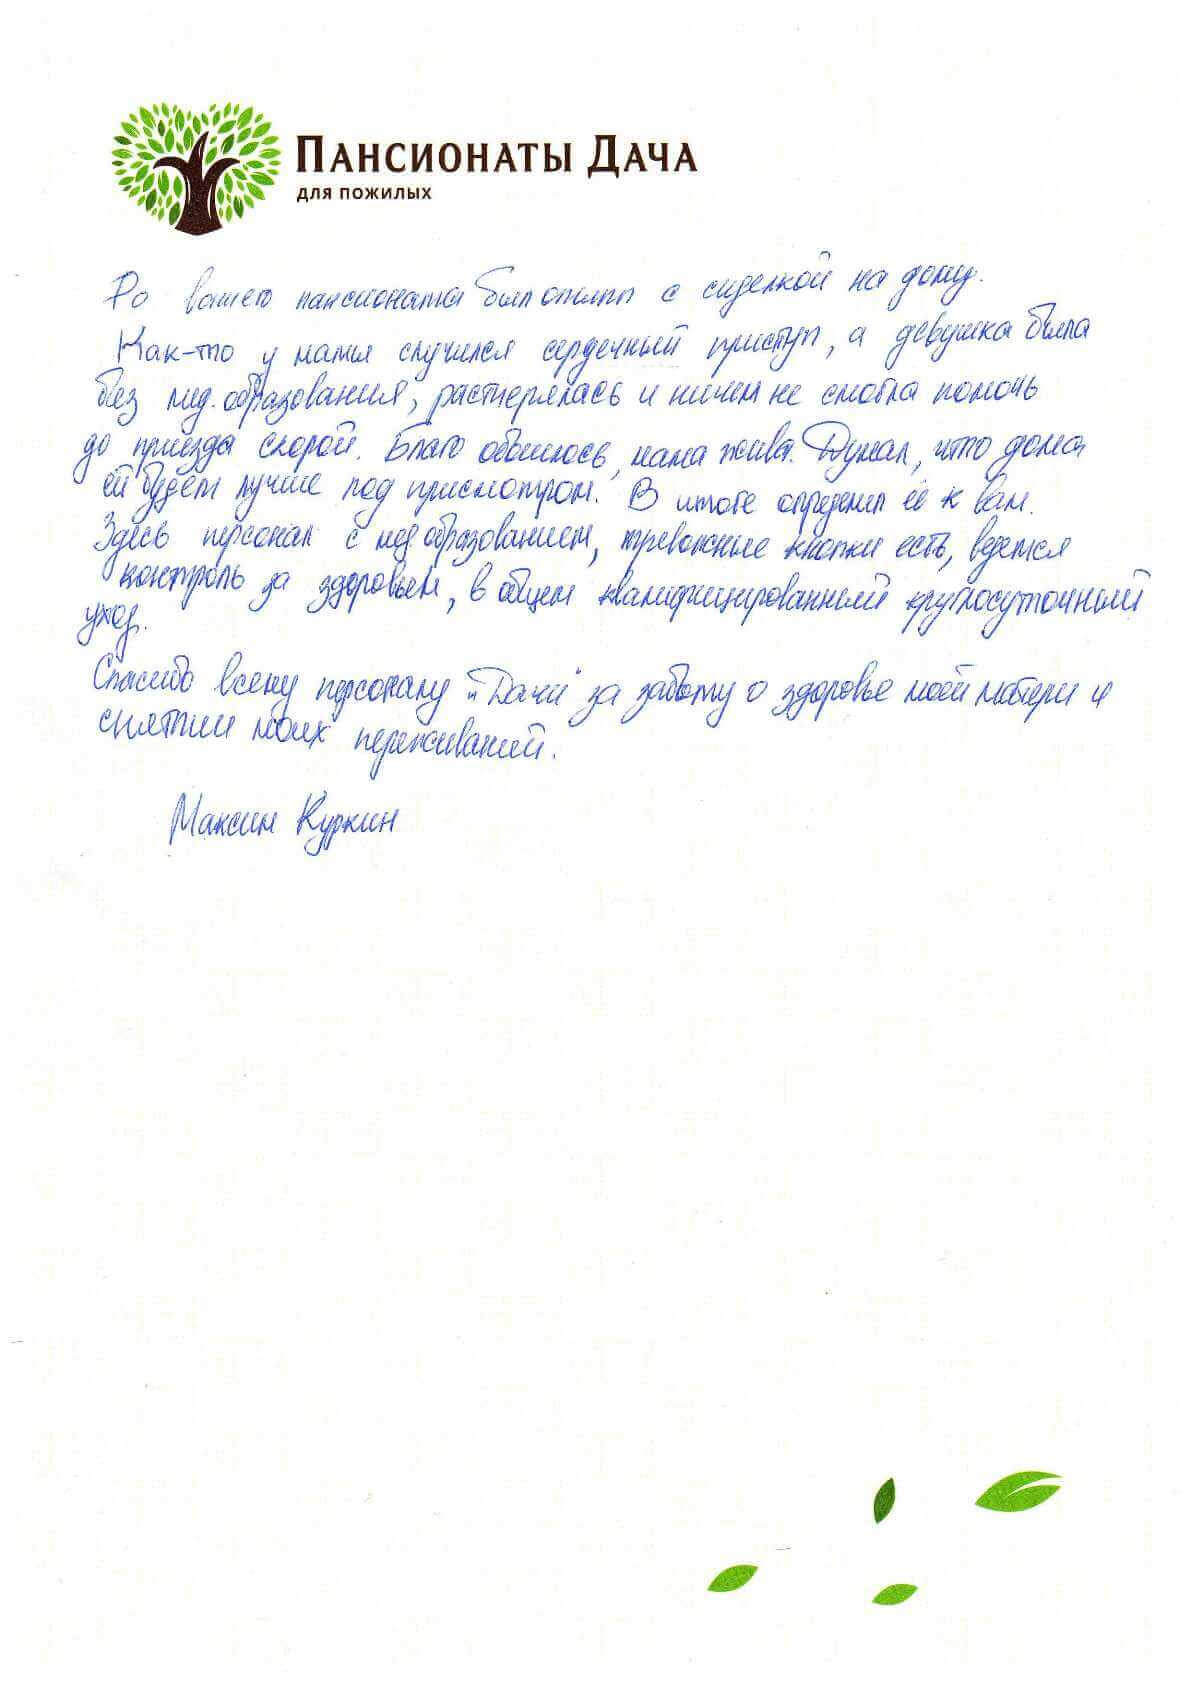 ПАНСИОНАТЫ ДАЧА
ДЛЯ ПОЖИЛЫХ
До вашего пансионата был опыт с сиделкой на дому.
Как-то у мамы случился сердечный приступ, а девушка была
без мед. образования, растерялась и ничем не смогла помочь
до приезда скорой. Благо обошлось, мама жива. Думал, что дома
ей будет лучше под присмотром. В итоге определил её к вам.
Здесь персонал с мед. образованием, тревожные кнопки есть, ведется
контроль за здоровьем, в общем квалифицированный круглосуточный
уход.
Спасибо всему персоналу "Дачи" за заботу о здоровье моей матери и
снятии моих переживаний.
Максим Куркин